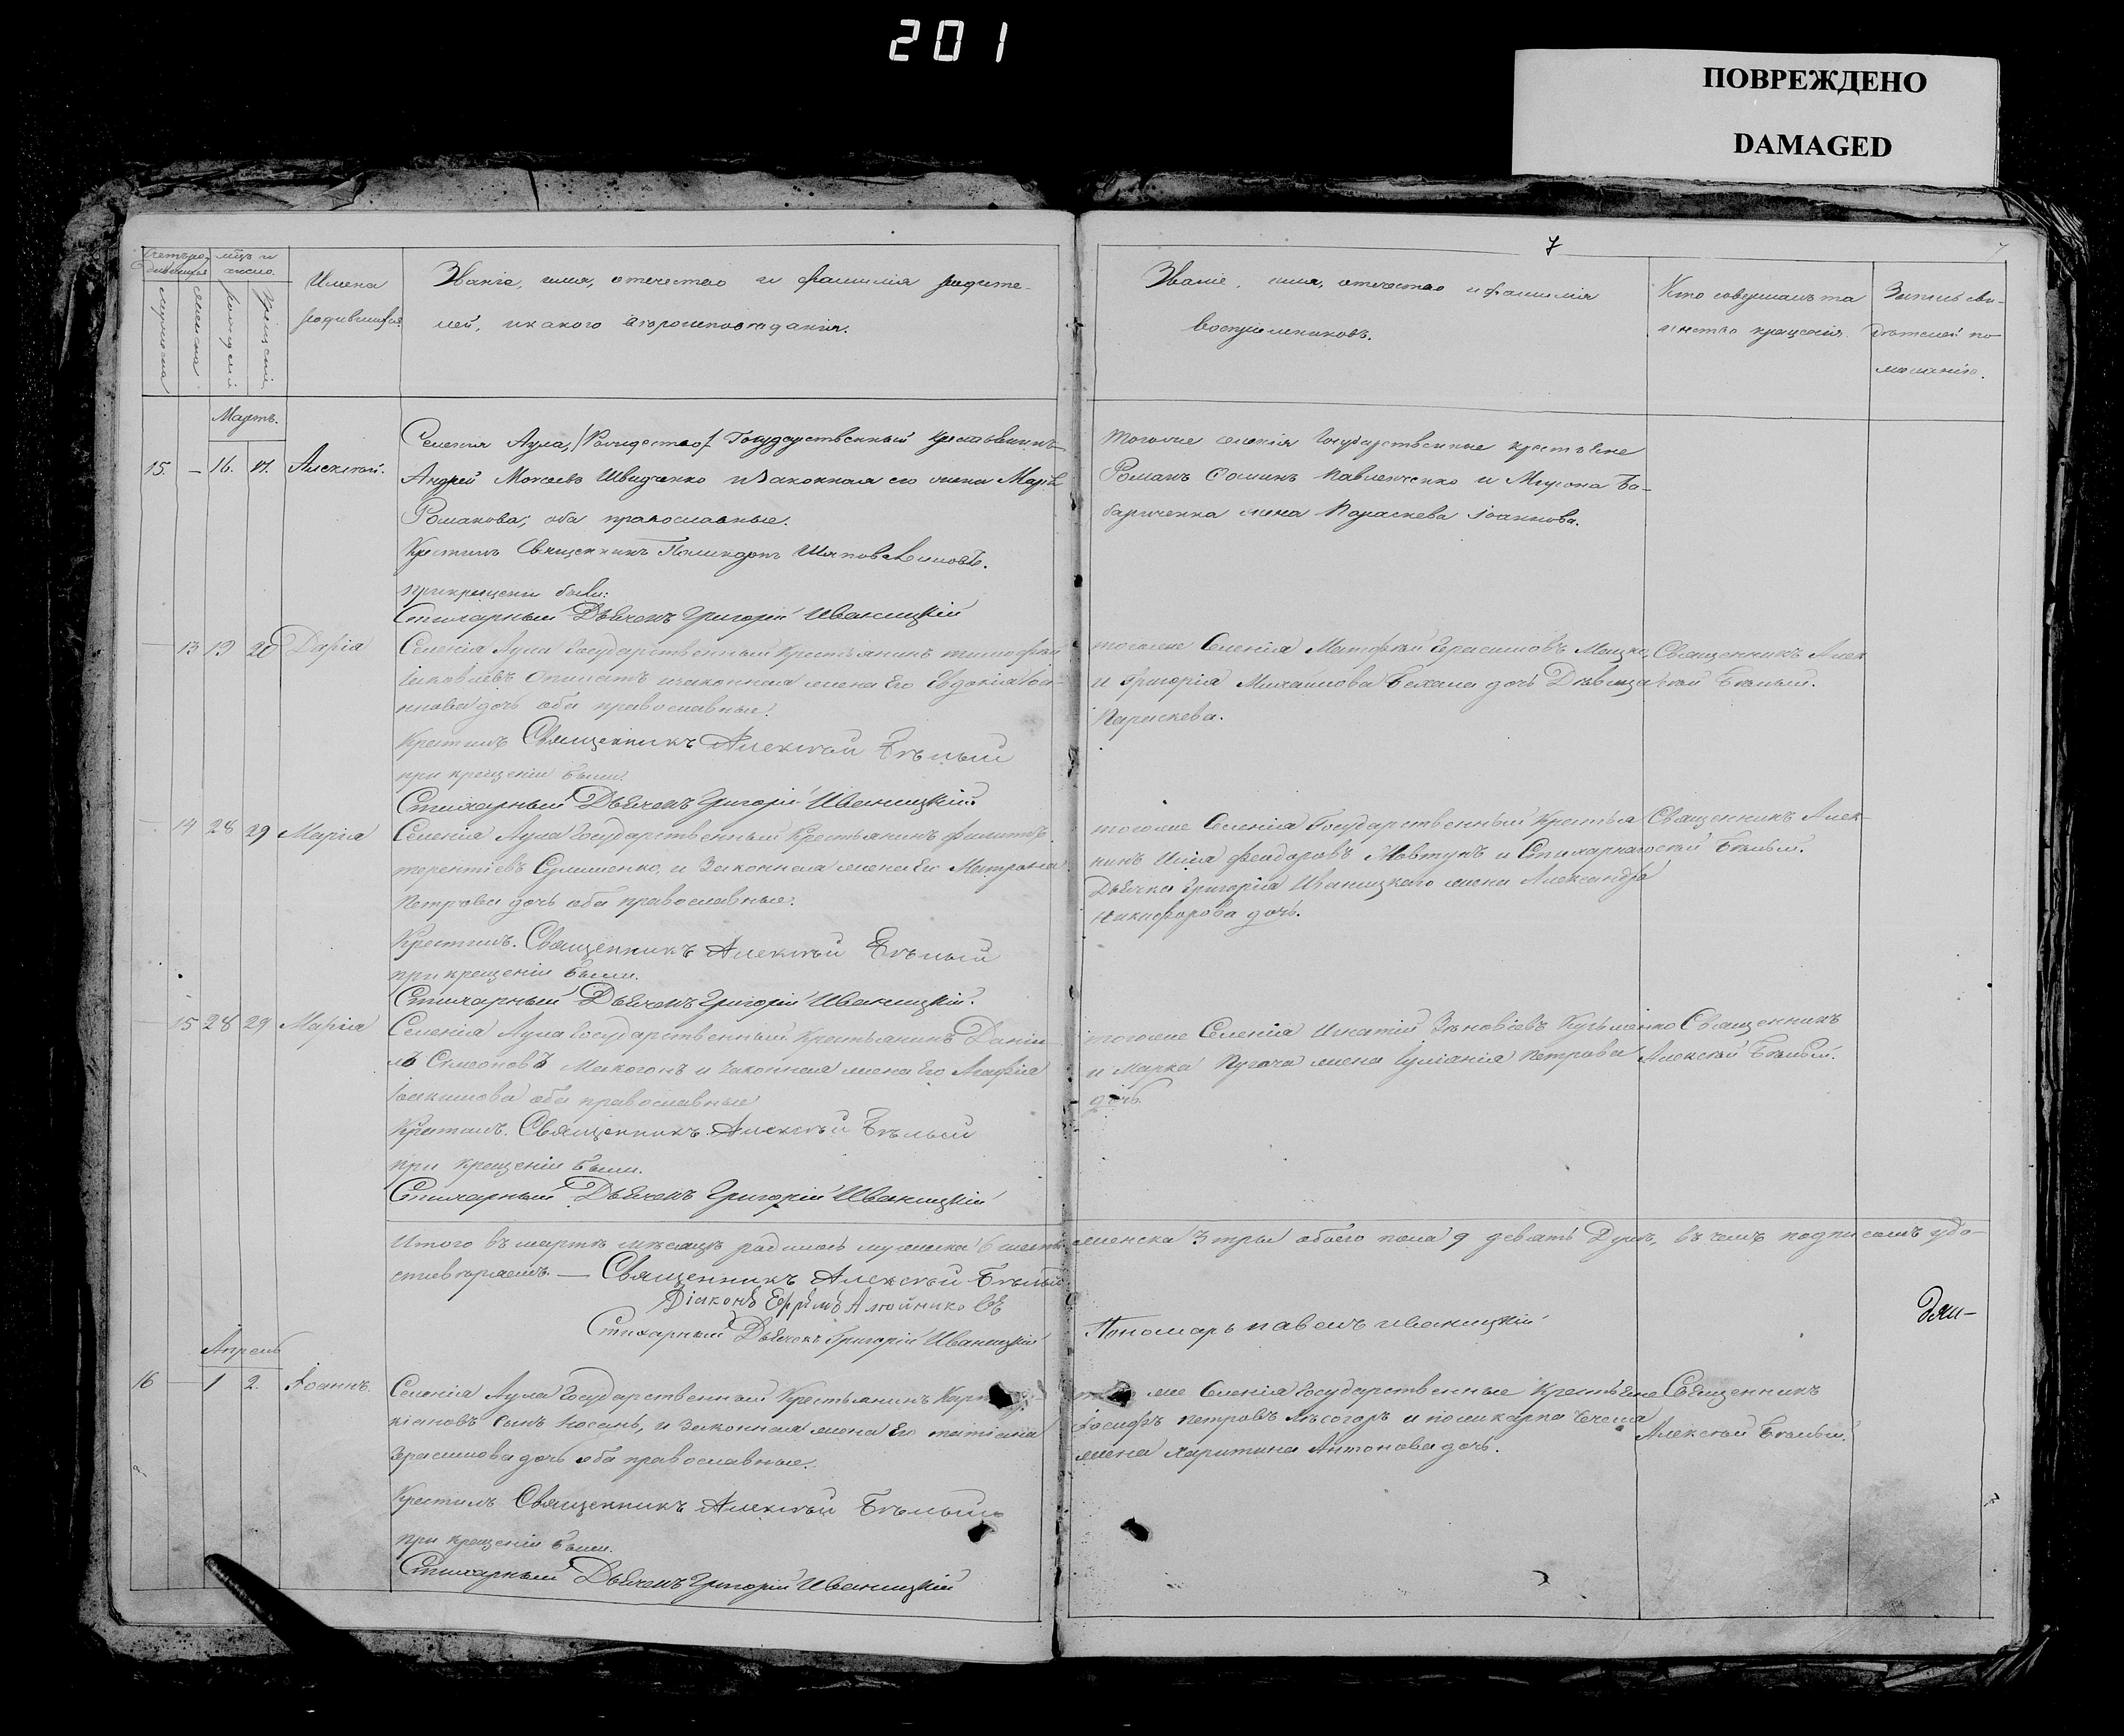 201
ПОВРЕЖДЕНО
DAMAGED
7
Имена
родившихся.
Званіе, имя, отчество и фамилія родите-
лей, и какого вѣроисповѣданія.
Званіе, имя, отчество и фамилія
воспріемниковъ.
Кто совершалъ та
инство крещенія.
Март.
15. — 16. 17. Алексѣй.
Селенія Аула, Государственный крестьянинъ
Андрей Моисеевъ Швидченко и законная его жена Марѳа
Романова; оба православные.
Крестилъ Священникъ Шаповаленковъ.
при крещеніи были:
Стихарный Дьячекъ Григорій Иваницкій
тогоже селенія Государственные крестьяне
Романъ Ѳоминъ Павленченко и Мирона Ба-
жена Параскева Іоаннова.
— 13 19 20 Дарія
Селенія Аула Государственный Крестьянинъ Тимофей
Іаковлевъ и законная жена Его Евдокія Іоа-
ннова дочь оба православные.
Крестилъ Священникъ Алексѣй Бѣлый
при крещеніи были.
Стихарный Дьячекъ Григорій Иваницкій.
тогоже Селенія Матѳей Герасимовъ Мацко,
и Григорія Михаилова дочь Дѣвица
Параскева.
Священникъ Алек
сѣй Бѣлый.
— 14 28 29 Марія
Селенія Аула Государственный Крестьянинъ Филиппъ
Терентіевъ Сулименко, и Законная жена Его Матрона
Петрова дочь оба православные.
Крестилъ. Священникъ Алексѣй Бѣлый
при крещеніи были.
Стихарный Дьячекъ Григорій Иваницкій.
тогоже Селенія Государственный Крестья
нинъ Илія Феодоровъ Мовтунъ и Стихарнаго
Дьячка Григорія Иваницкаго жена Александра
Никифорова дочь.
Священникъ Алек-
сѣй Бѣлый.
— 15 28 29 Марія
Селенія Аула Государственный Крестьянинъ Даніи
лъ Симеоновъ Макогонъ и законная жена Его Агафія
Іоакимова оба православные
Крестилъ. Священникъ Алексѣй Бѣлый
при крещеніи были.
Стихарный Дьячекъ Григорій Иваницкій
тогоже Селенія Игнатій Зѣновіевъ Кузьменко
и Марка Пугача жена Іуліанія Петрова
дочь.
Священникъ
Алексѣй Бѣлый.
Итого въ мартѣ мѣсяцѣ родилось мужеска 6 шесть женска 3 три обоего пола 9 девять Душъ, въ чемъ подписомъ удо-
стовѣряемъ. — Священникъ Алексѣй Бѣлый
Діаконъ Ефремъ Алейниковъ
Стихарный Дьячекъ Григорій Иваницкій
Пономарь Павелъ Иваницкій
Апрель
16 — 1 2. Іоаннъ.
Селенія Аула Государственный Крестьянинъ
кіановъ сынъ Носань, и Законная жена Его Татіана
Герасимова дочь оба православные.
Крестилъ Священникъ Алексѣй Бѣлый
при крещеніи были.
Стихарный Дьячекъ Григорій Иваницкій
же Селенія Государственные Крестьяне
Іосифъ Петровъ Лысогоръ и Поликарпа
жена Харитина Антонова дочь.
Священникъ
Алексѣй Бѣлый.